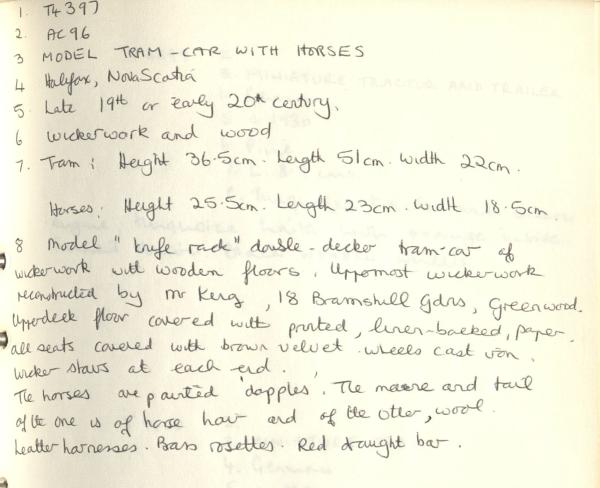 1. T4397
2. AC96
3 MODEL TRAM-CAR WITH HORSES
4 Halyfax, Nova Scatia
5. Late 19th or early 20th century.
6 wickerwork and wood
7. Tram: Height 36.5cm. Length 51cm. Width 22cm.
Horses: Height 25.5cm. Length 23cm. Width 18.5cm
8 Model "knife rack" double-decker tram-car of
wickerwork with wooden floors. Uppermost wickerwork
reconstructed by Mr , 18 Bramshill Gdns, Greenwood.
Upperdeck floor covered with printed, linen-backed, paper.
all seats covered with brown velvet. wheels cast iron.
wicker stairs at each end.
The horses are painted 'dapples. The maene and tail
of the one is of horse hair and of the other, wool.
Leather harnesses. Bass rosettes. Red draught bar.